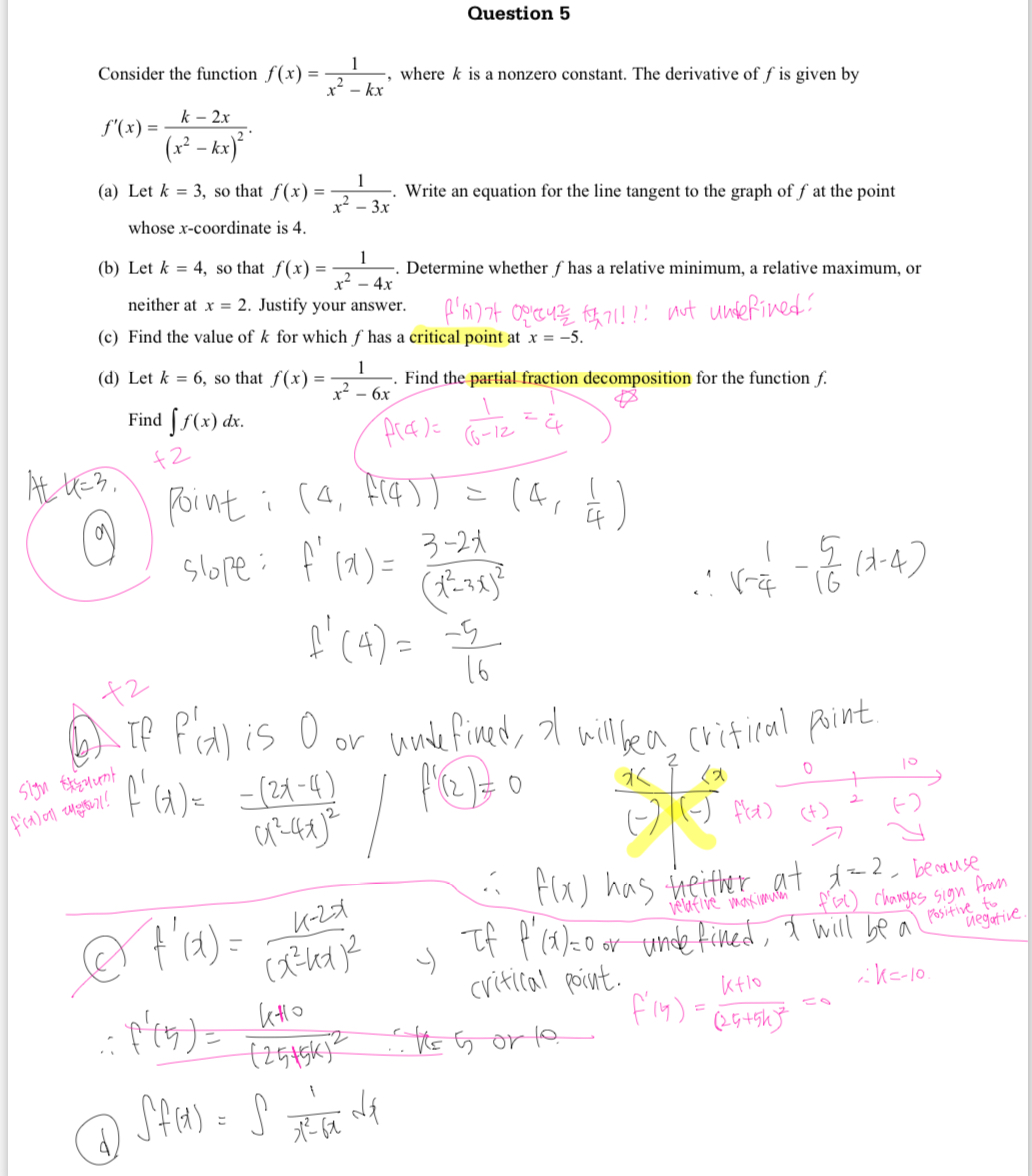 Question 5
Consider the function f(x) = 1/(x² − kx), where k is a nonzero constant. The derivative of f is given by
f′(x) = (k − 2x)/(x² − kx)².
(a) Let k = 3, so that f(x) = 1/(x² − 3x). Write an equation for the line tangent to the graph of f at the point
whose x-coordinate is 4.
(b) Let k = 4, so that f(x) = 1/(x² − 4x). Determine whether f has a relative minimum, a relative maximum, or
neither at x = 2. Justify your answer.
f'(x)가 찾기!!! not undefined!
(c) Find the value of k for which f has a critical point at x = −5.
(d) Let k = 6, so that f(x) = 1/(x² − 6x). Find the partial fraction decomposition for the function f.
Find ∫ f(x) dx.
f(4)= 1/(16-12) = 1/4
+2
At k=3,
ⓐ
Point : (4, f(4)) = (4, 1/4)
slope : f'(x) = (3-2x)/(x²-3x)²
∴ y-1/4 - 5/16 (x-4)
f'(4) = -5/16
+2
ⓑ If f'(x) is 0 or undefined, x will be a critical point.
sign
f'(x)에
f'(x) = -(2x-4)/(x²-4x)² / f'(2)=0
x< 2 <x
(-) (-)
0 2 10
f'(x) (+) (-)
∴ f(x) has neither at x=2, because
relative maximum f'(x) changes sign from
positive to
negative.
ⓒ f'(x) = (k-2x)/(x²-kx)² , If f'(x)=0 or undefined, x will be a
critical point.
f'(5) = (k+10)/(25+5k)² = 0 ∴ k=-10
∴ f'(5) = (k+10)/(25+5k)² ∴ k= 5 or 10.
ⓓ ∫f(x) = ∫ 1/(x²-6x) dx